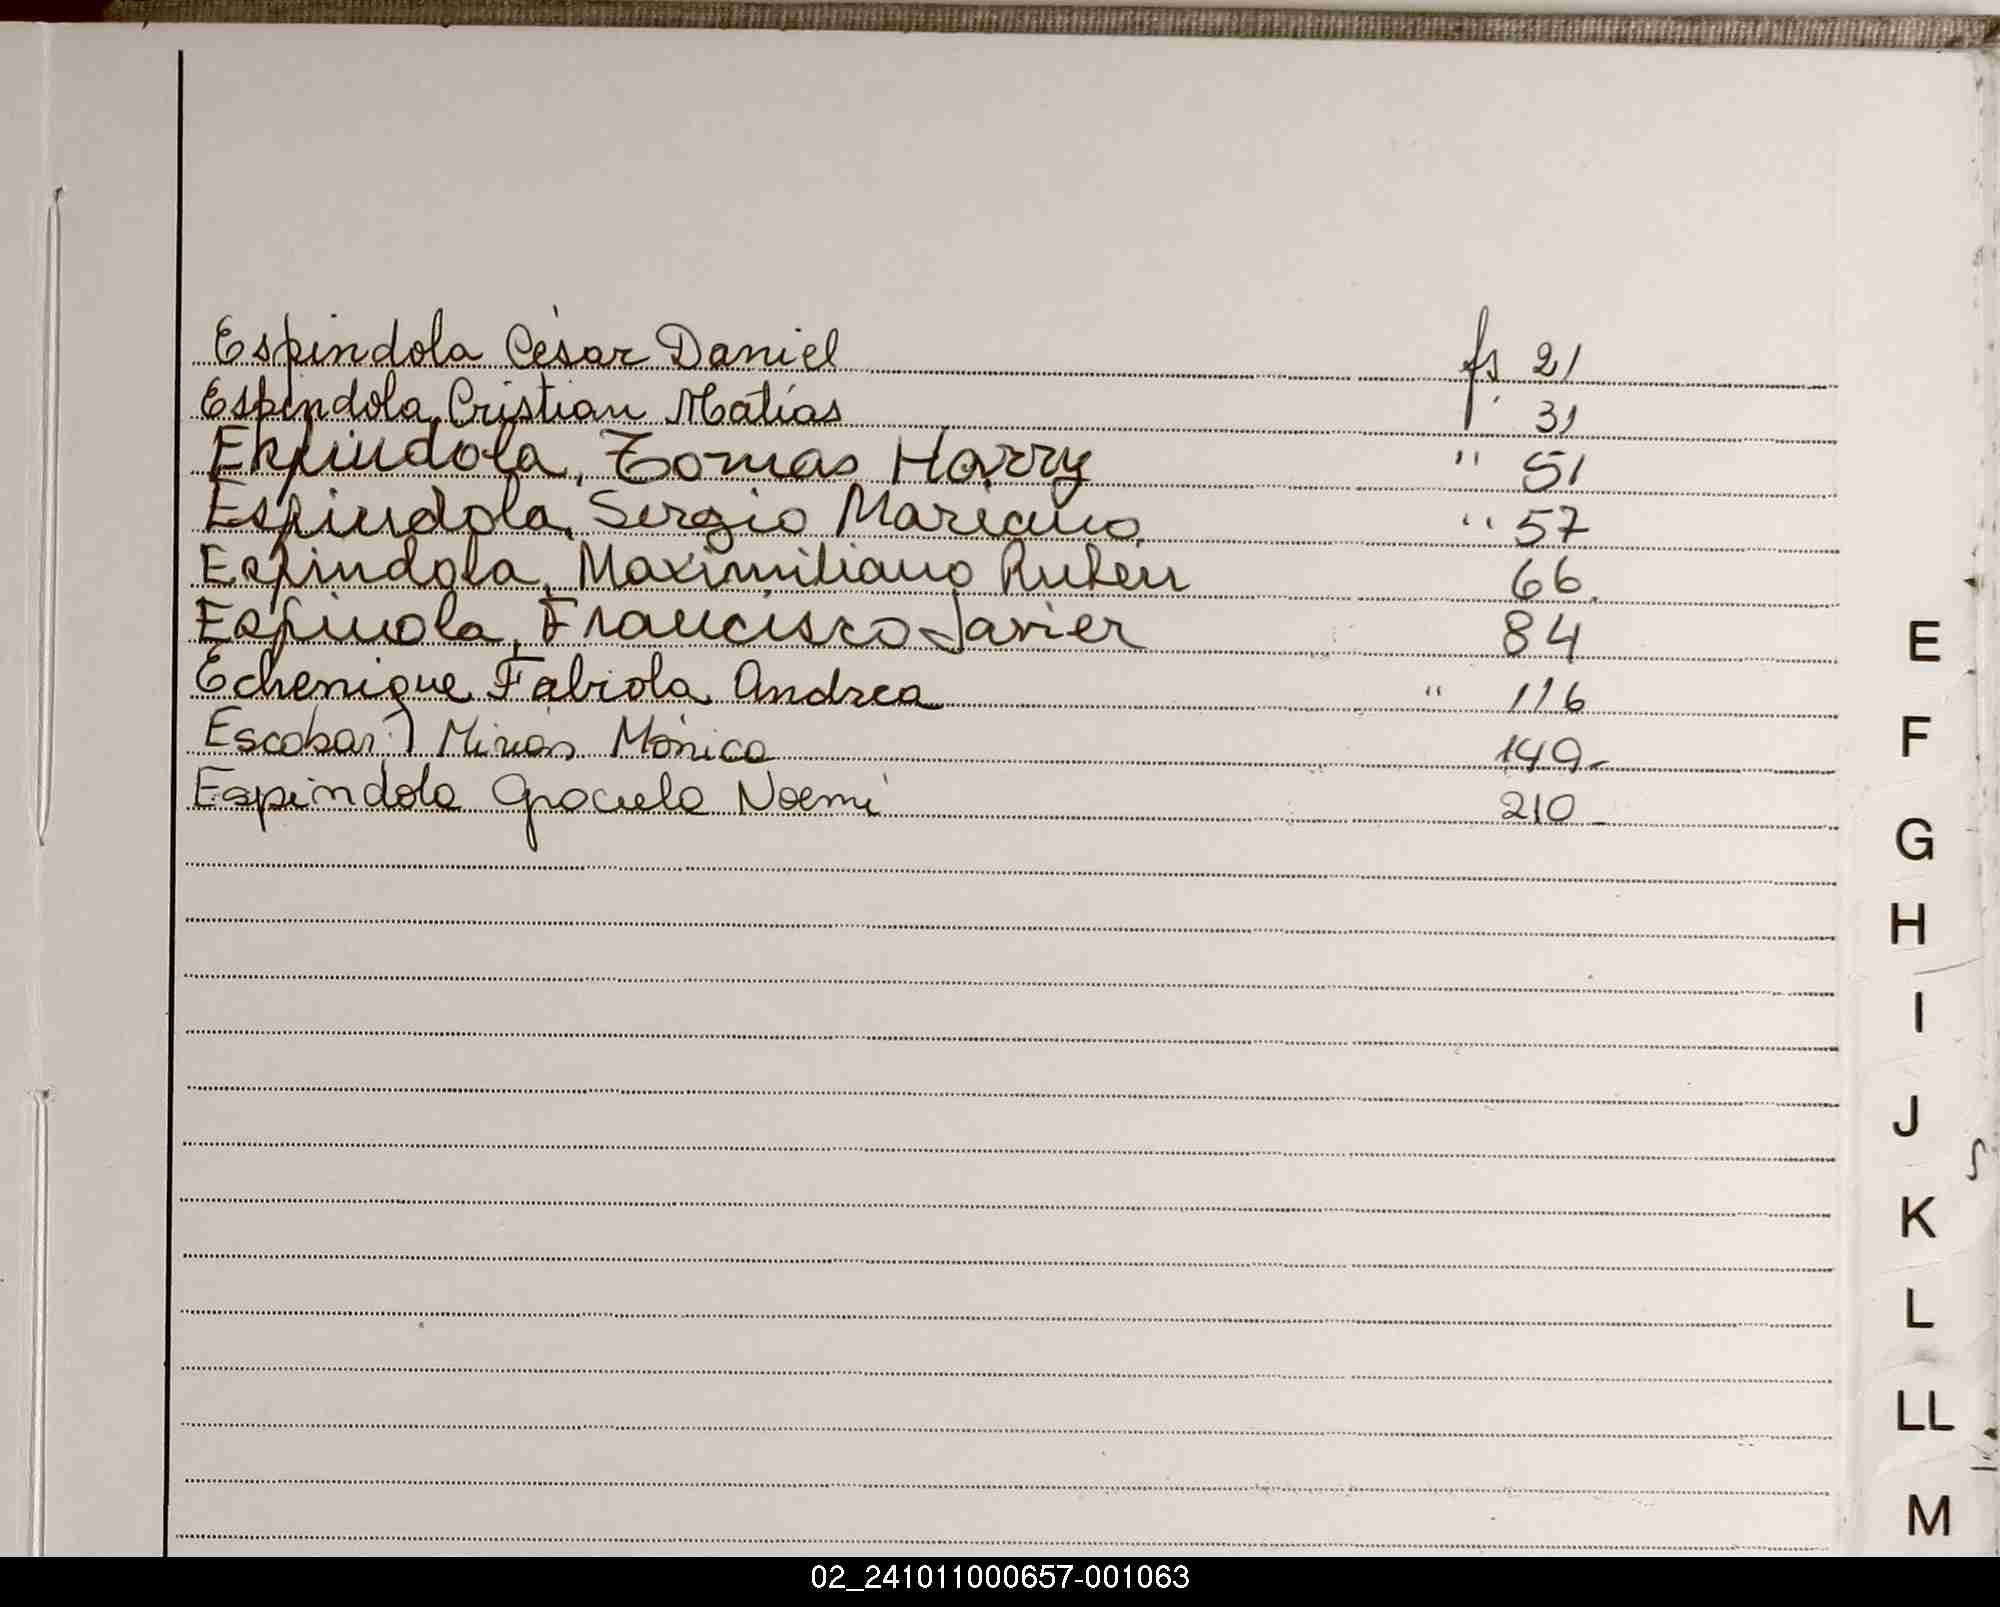 Espindola César Daniel fs 21
Espindola, Cristian Matías 31
Espindola, Tomas Harry " 51
Espindola, Sergio Mariano " 57
Espindola, Maximiliano Ruben 66.
Espinola, Francisco Javier 84
Echenique Fabiola Andrea " 116
Escobar Mónica 149-
Espindola Graciela Noemí 210-
E
F
G
H
I
J
K
L
LL
M
02_241011000657-001063